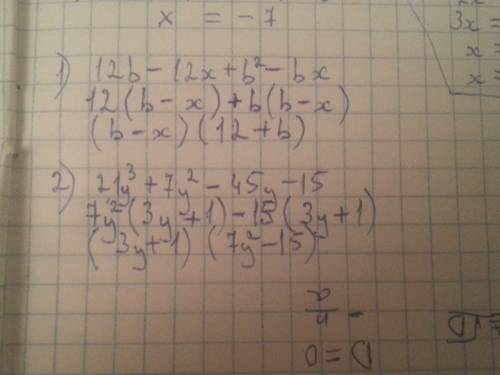 x = -7
1) 12b - 12x + b² - bx
12(b - x) + b(b - x)
(b - x)(12 + b)
2) 21y³ + 7y² - 45y - 15
7y²(3y + 1) - 15(3y + 1)
(3y + 1)(7y² - 15)
3x =
x
x
D = 0